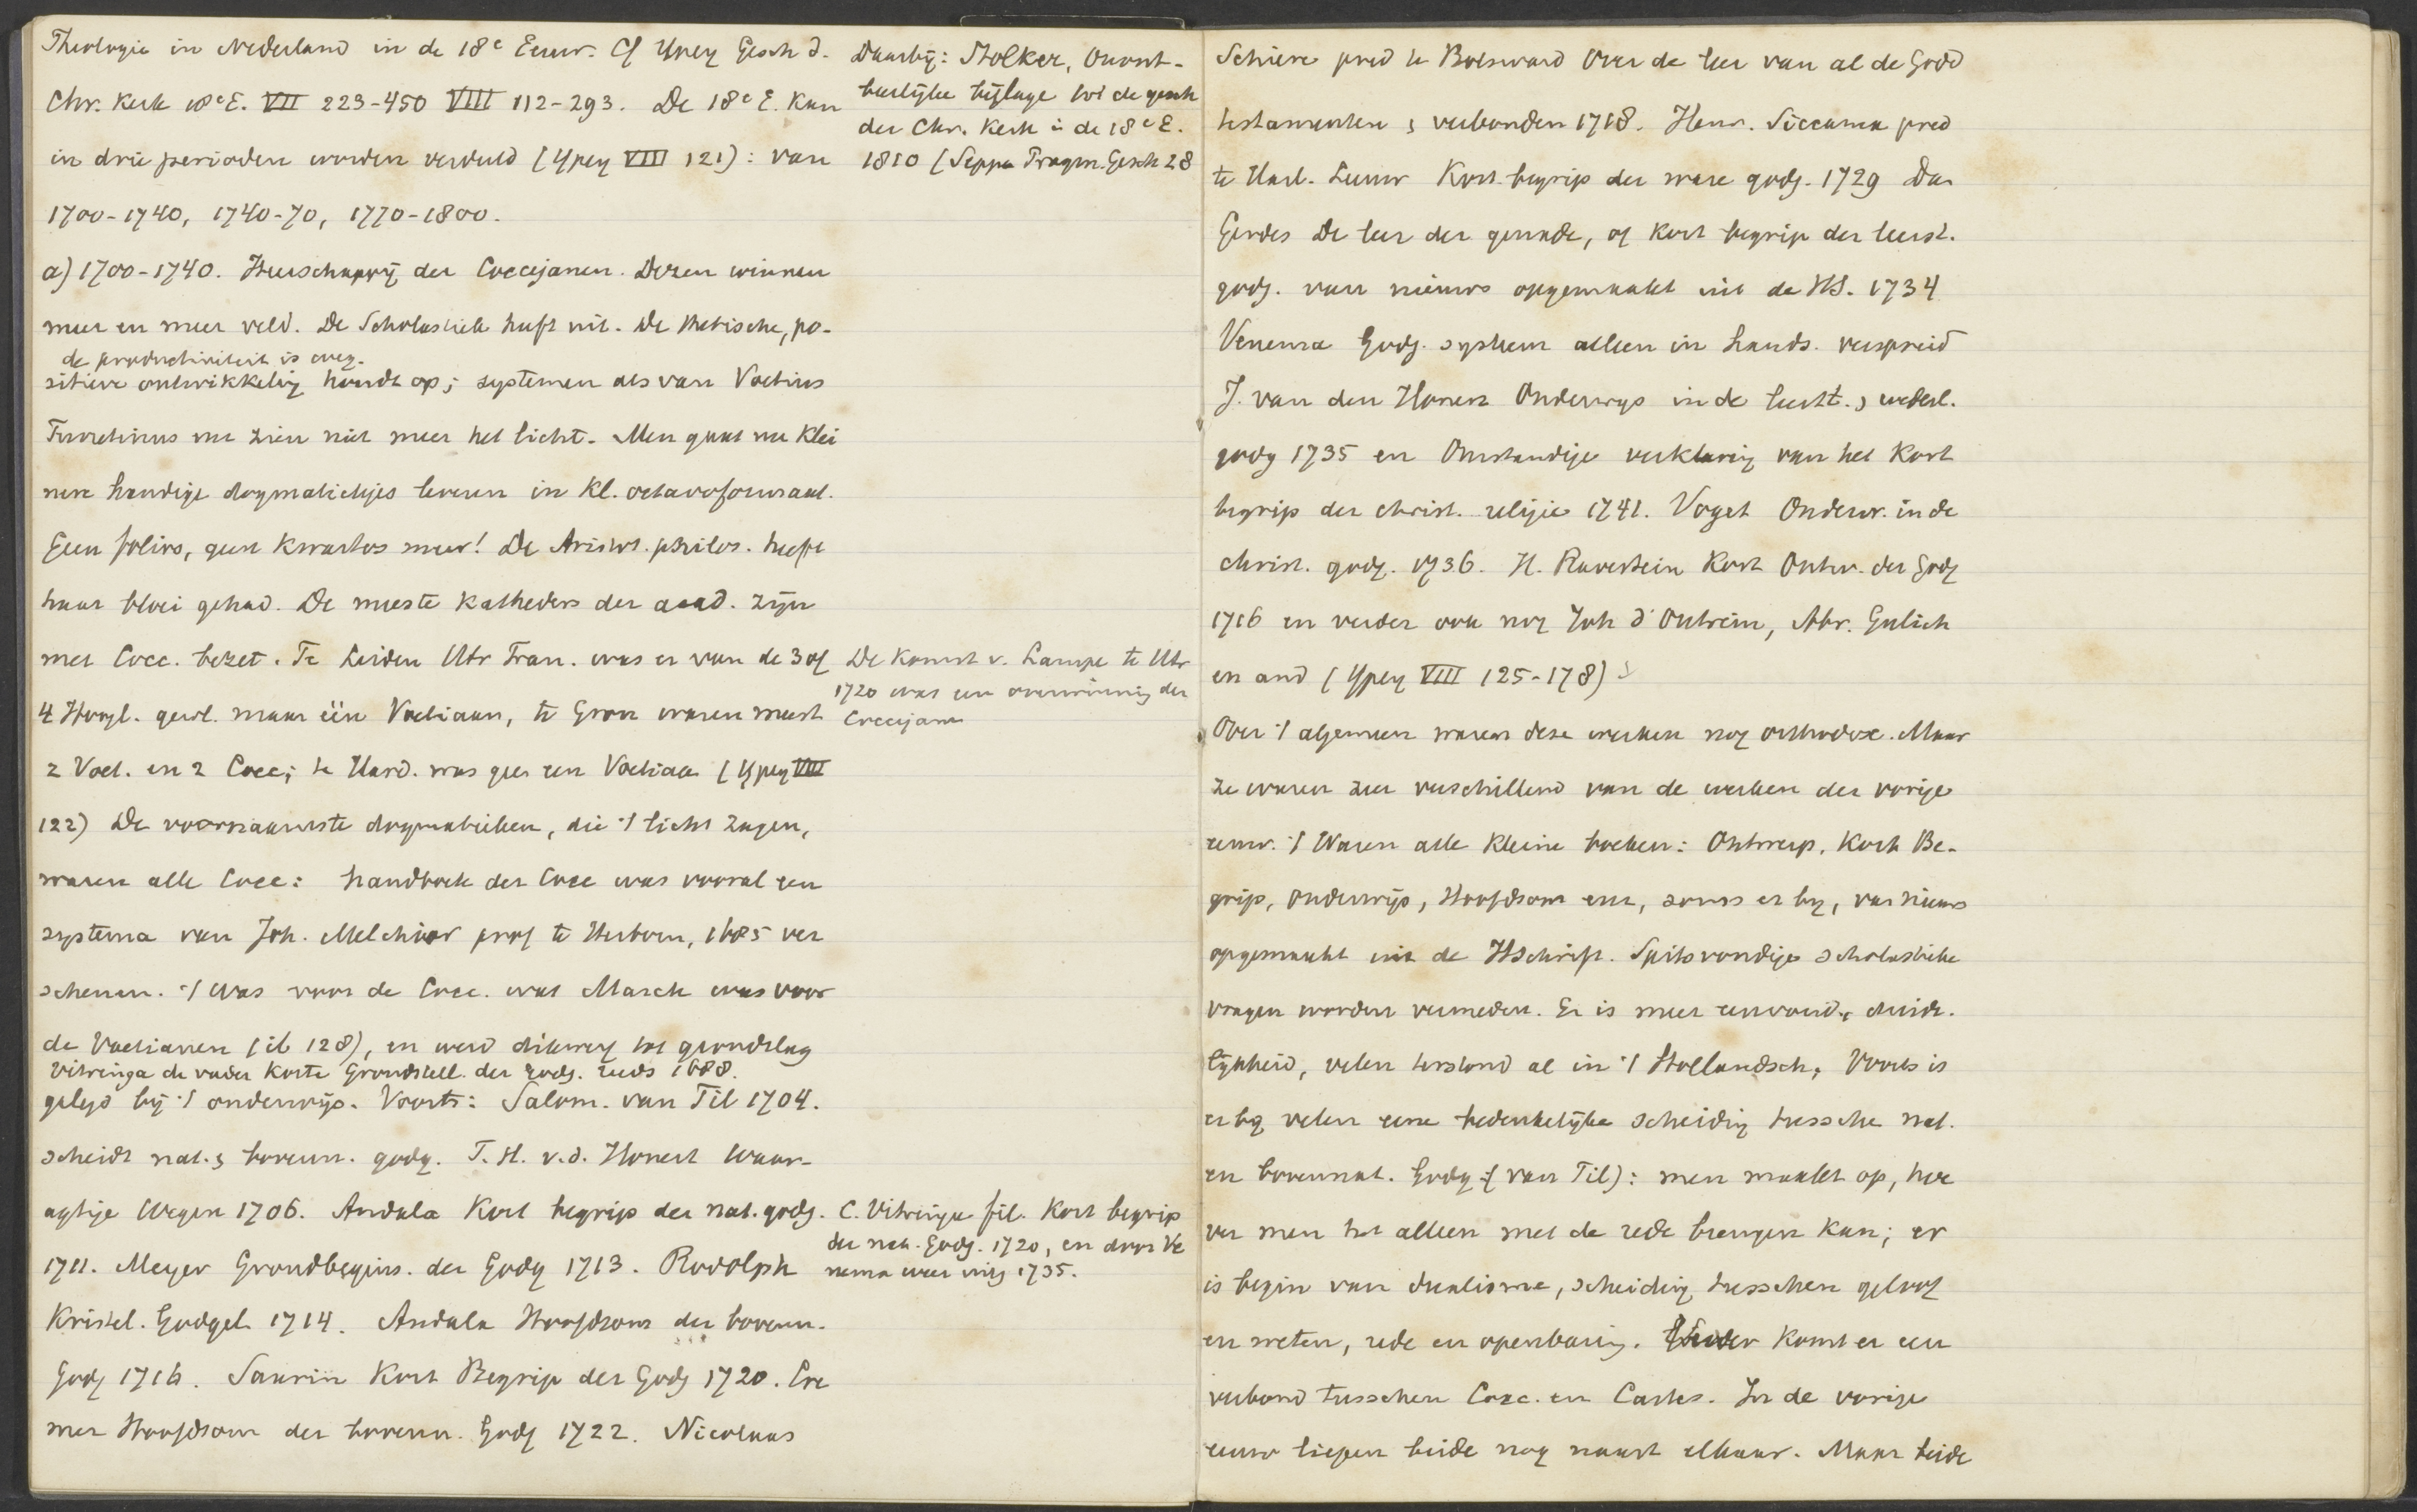 Theologie in Nederland in de 18e Eeuw. Cf Ypey Gesch d.
Chr. Kerk 18e E. VII 223-450 VIII 112-293. De 18e E. kan
in drie perioden worden verdeeld (Ypey VIII 121): van
1700-1740, 1740-70, 1770-1800.
a) 1700-1740. Heerschappij der Coccejanen. Dezen winnen
meer en meer veld. De Scholastiek heeft uit. De thetische, po-
de productiviteit is weg.
sitieve ontwikkeling houdt op; systemen als van Voetius
Turretinus enz zien niet meer het licht. Men gaat nu klei
nere handige dogmatiekjes leveren in kl. octavoformaat.
Geen folios, geen kwartos meer! De Aristot. philos. heeft
haar bloei gehad. De meeste katheders der acad. zijn
met Cocc. bezet. Te Leiden Utr Fran. was er van de 3 of
4 Hoogl. gewl. maar één Voetiaan, te Gron waren meest
2 Voet. en 2 Cocc; te Hard. was geen een Voetiaan (Ypey VIII
122) De voornaamste dogmatieken, die 't licht zagen,
waren alle Cocc: handboek der Cocc was vooral een
systema van Joh. Melchior prof te Herborn, 1685 ver
schenen. 't Was voor de Cocc. wat Marck was voor
de Voetianen (ib 128), en werd dikwerf tot grondslag
Vitringa de vader Korte Grondstell. der godg. reeds 1688.
gelegd bij 't onderwijs. Voorts: Salom. van Til 1704.
scheidt nat. & bovenn. godg. T. H. v.d. Honert Waar-
agtige Wegen 1706. Andala Kort begrip der nat. godg.
1711. Meyer Grondbegins. der Godg 1713. Rudolph
Kristel. Godgel. 1714. Andala Hoofdsom der bovenn.
Godg 1716. Saurin Kort Begrip der Godg 1720. Cre
mer Hoofdsom der bovenn. Godg 1722. Nicolaas
Daarbij: Stolker, Onont-
beerlijke bijlage tot de gesch
der Chr. Kerk in de 18e E.
1810 (Sepp Pragm. Gesch 28
De komst v. Lampe te Utr
1720 was een overwinning der
Coccejanen
C. Vitringa fil. Kort begrip
der nat. Godg. 1720, en door Ve
nema weer uitg 1735.
Schiere pred te Bolsward Over de leer van al de Godd
testamenten & verbonden 1718. Henr. Siccama pred
te Harl. Leeuw Kort begrip der ware godg. 1729 Dan
Gerdes De leer der genade, of kort begrip der leerst.
godg. van nieuws opgemaakt uit de HS. 1734
Venema Godg. systeem alleen in hands. verspreid
J. van den Honert Onderwys in de leerst. & wederl.
godg 1735 en Omstandige verklaring van het Kort
begrip der christ. religie 1741. Voget Onderw. in de
christ. godg. 1736. H. Ravestein Kort Ontw. der Godg
1716 en verder ook nog Joh d'Outrein, Abr. Gulich
en and (Ypey VIII 125-178)
Over 't algemeen waren deze werken nog orthodox. Maar
ze waren zeer verschillend van de werken der vorige
eeuw. 't Waren alle kleine boeken: Ontwerp, Kort Be-
grip, Onderwijs, Hoofdsom enz, soms er by, van nieuws
opgemaakt uit de HSchrift. Spitsvondige scholastieke
vragen worden vermeden. Er is meer eenvoud & duide-
lijkheid, velen terstond al in 't Hollandsch, Voorts is
er by velen eene bedenkelijke scheiding tussche nat.
en bovennat. Godg (van Til): men maakt op, hoe
ver men het alleen met de rede brengen kan; er
is begin van dualisme, scheiding tusschen geloof
en weten, rede en openbaring. Verder komt er een
verbond tusschen Cocc. en Cartes. In de vorige
eeuw liepen beide nog naast elkaar. Maar beide